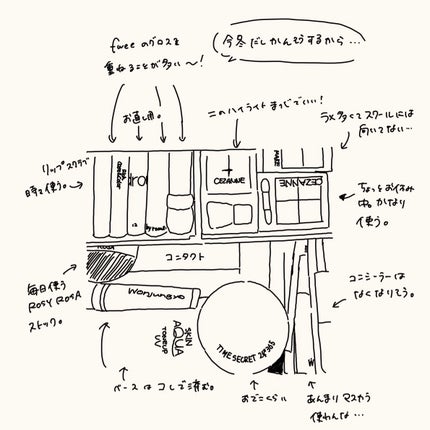 fweeのグロスを
重ねることが多い〜!
今冬だしかんそうするから…
お直し用。
このハイライトまじでいい!
ラメ多くてスクールには
向いてない…
リップスクラブ
時々使う。
CEZANNE
CEZANNE
ちょっとお休み
中。かなり
使う。
コンタクト
毎日使う
ROSY ROSA
ストック。
コンシーラーは
なくなりそう。
SKIN
AQUA
TONE UP
UV
TIME SECRET
ベースはコレで済む。
おでこくらい
あんまりマスカラ
使わんな…